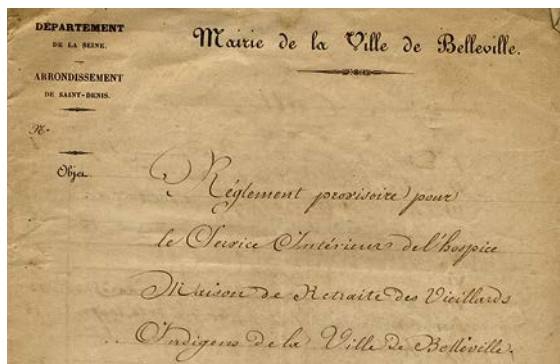 DÉPARTEMENT
DE LA SEINE.
ARRONDISSEMENT
DE SAINT-DENIS.
N.
Objet.
Mairie de la Ville de Belleville.
Réglement provisoire pour
le Service Intérieur de l'hospice
Maison de Retraite des Vieillards
Indigens de la Ville de Belleville.